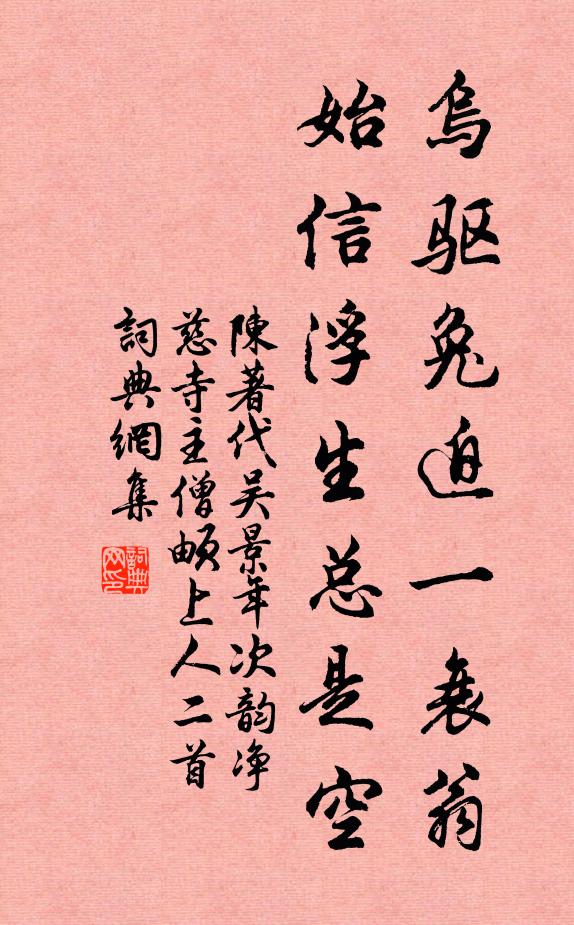 烏驱兔迫一衰翁
始信浮生总是空
陳著代吴景年次韵净
慈寺主僧頔上人二首
詞典網集
詞典网印